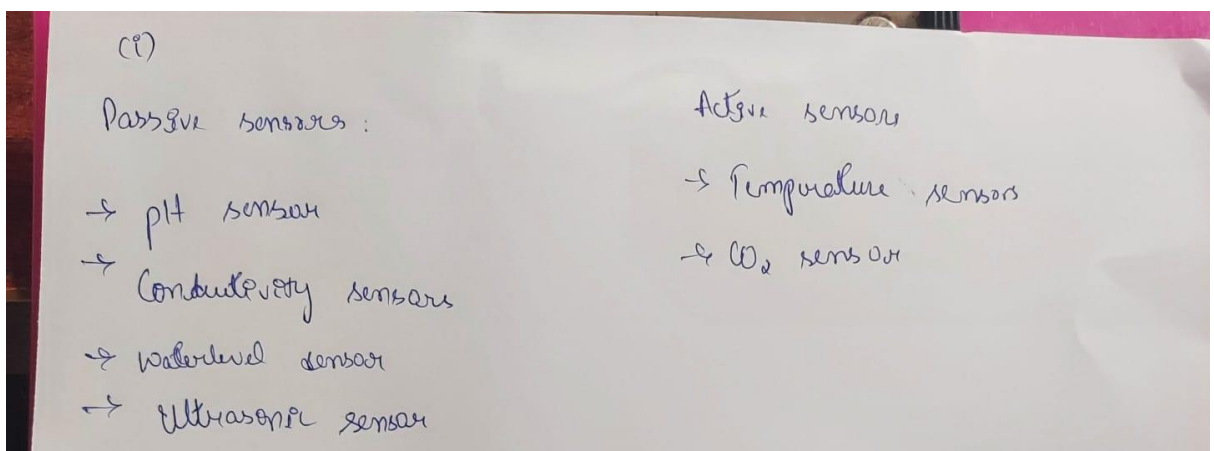 (i)
Passive sensors :
→ pH sensor
→ Conductivity sensors
→ waterlevel sensor
→ Ultrasonic sensor
Active sensors
→ Temperature sensors
→ CO₂ sensor